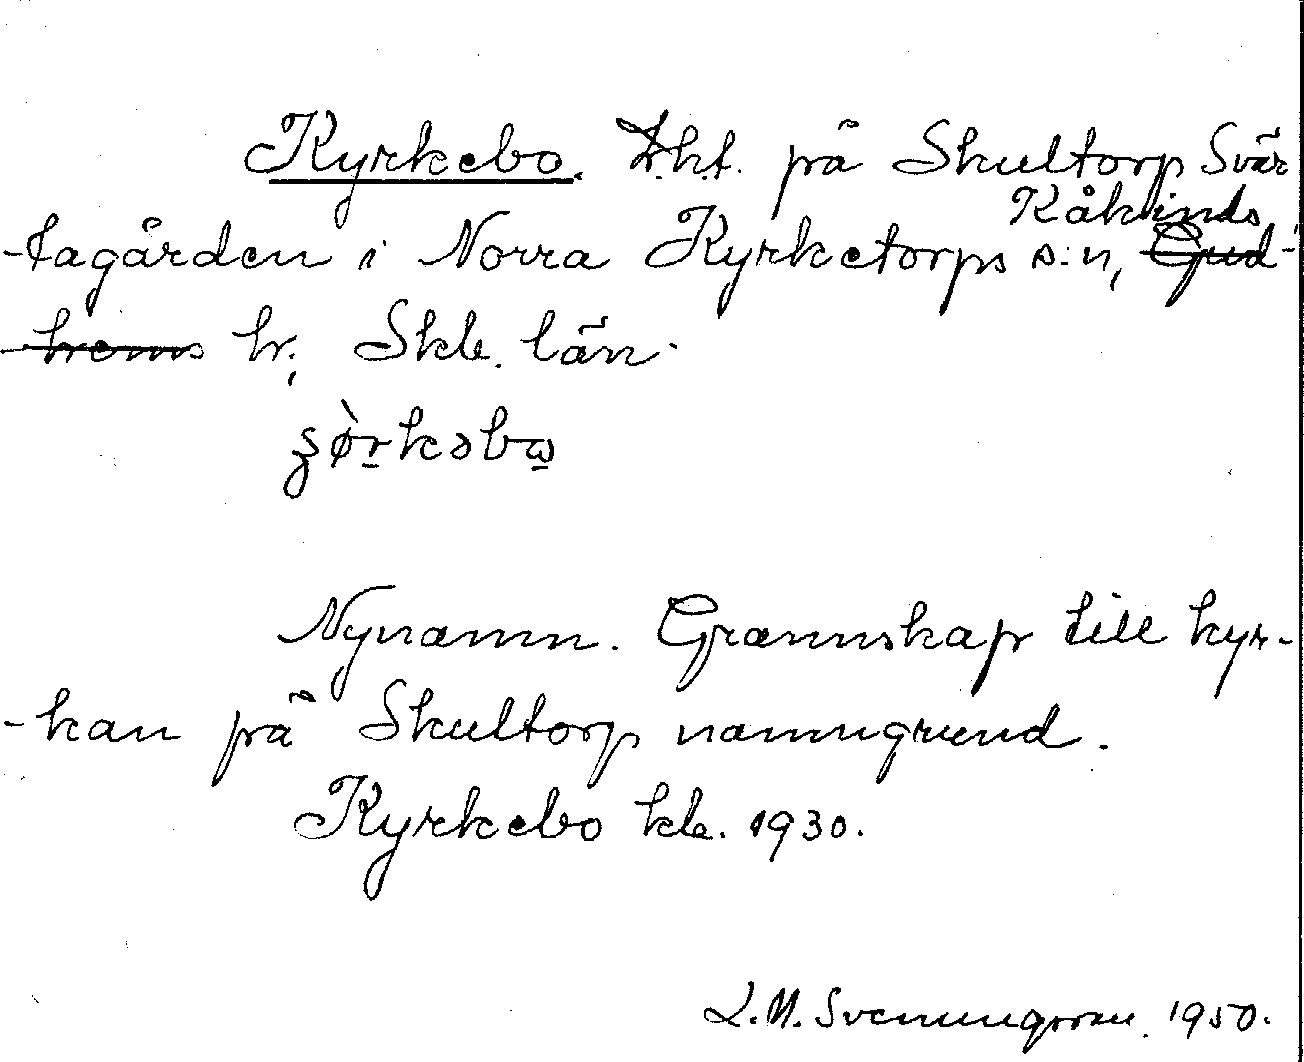 Kyrkebo. Lht. på Skultorp Svär-
-tagården i Norra Kyrketorps s:n, Kåkinds
hr, Skb. län.
Nynamn. Grannskap till kyr-
-kan på Skultorp namngrund.
Kyrkebo kb. 1930.
L.M. Svenungsson. 1950.